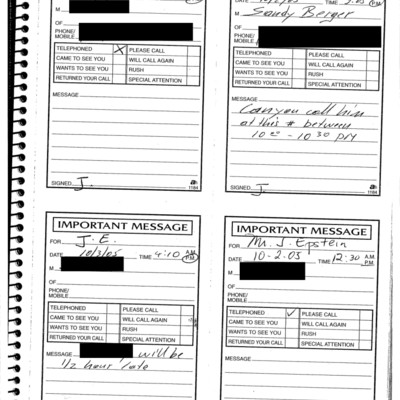 M
OF
PHONE/
MOBILE
TELEPHONED X PLEASE CALL
CAME TO SEE YOU WILL CALL AGAIN
WANTS TO SEE YOU RUSH
RETURNED YOUR CALL SPECIAL ATTENTION
MESSAGE
SIGNED J. 1184
P.M.
M Sandy Berger
OF
PHONE/
MOBILE
TELEPHONED PLEASE CALL
CAME TO SEE YOU WILL CALL AGAIN
WANTS TO SEE YOU RUSH
RETURNED YOUR CALL SPECIAL ATTENTION
MESSAGE
Can you call him
at this # between
10 - 10 30 PM
SIGNED J 1184
IMPORTANT MESSAGE
FOR J. E.
DATE 10/3/05 TIME 4:10 A.M. P.M.
M
OF
PHONE/
MOBILE
TELEPHONED PLEASE CALL
CAME TO SEE YOU WILL CALL AGAIN
WANTS TO SEE YOU RUSH
RETURNED YOUR CALL SPECIAL ATTENTION
MESSAGE will be
1/2 hour late
IMPORTANT MESSAGE
FOR Mr. J. Epstein
DATE 10-2-05 TIME 12:30 A.M. P.M.
M
OF
PHONE/
MOBILE
TELEPHONED ✓ PLEASE CALL
CAME TO SEE YOU WILL CALL AGAIN
WANTS TO SEE YOU RUSH
RETURNED YOUR CALL SPECIAL ATTENTION
MESSAGE